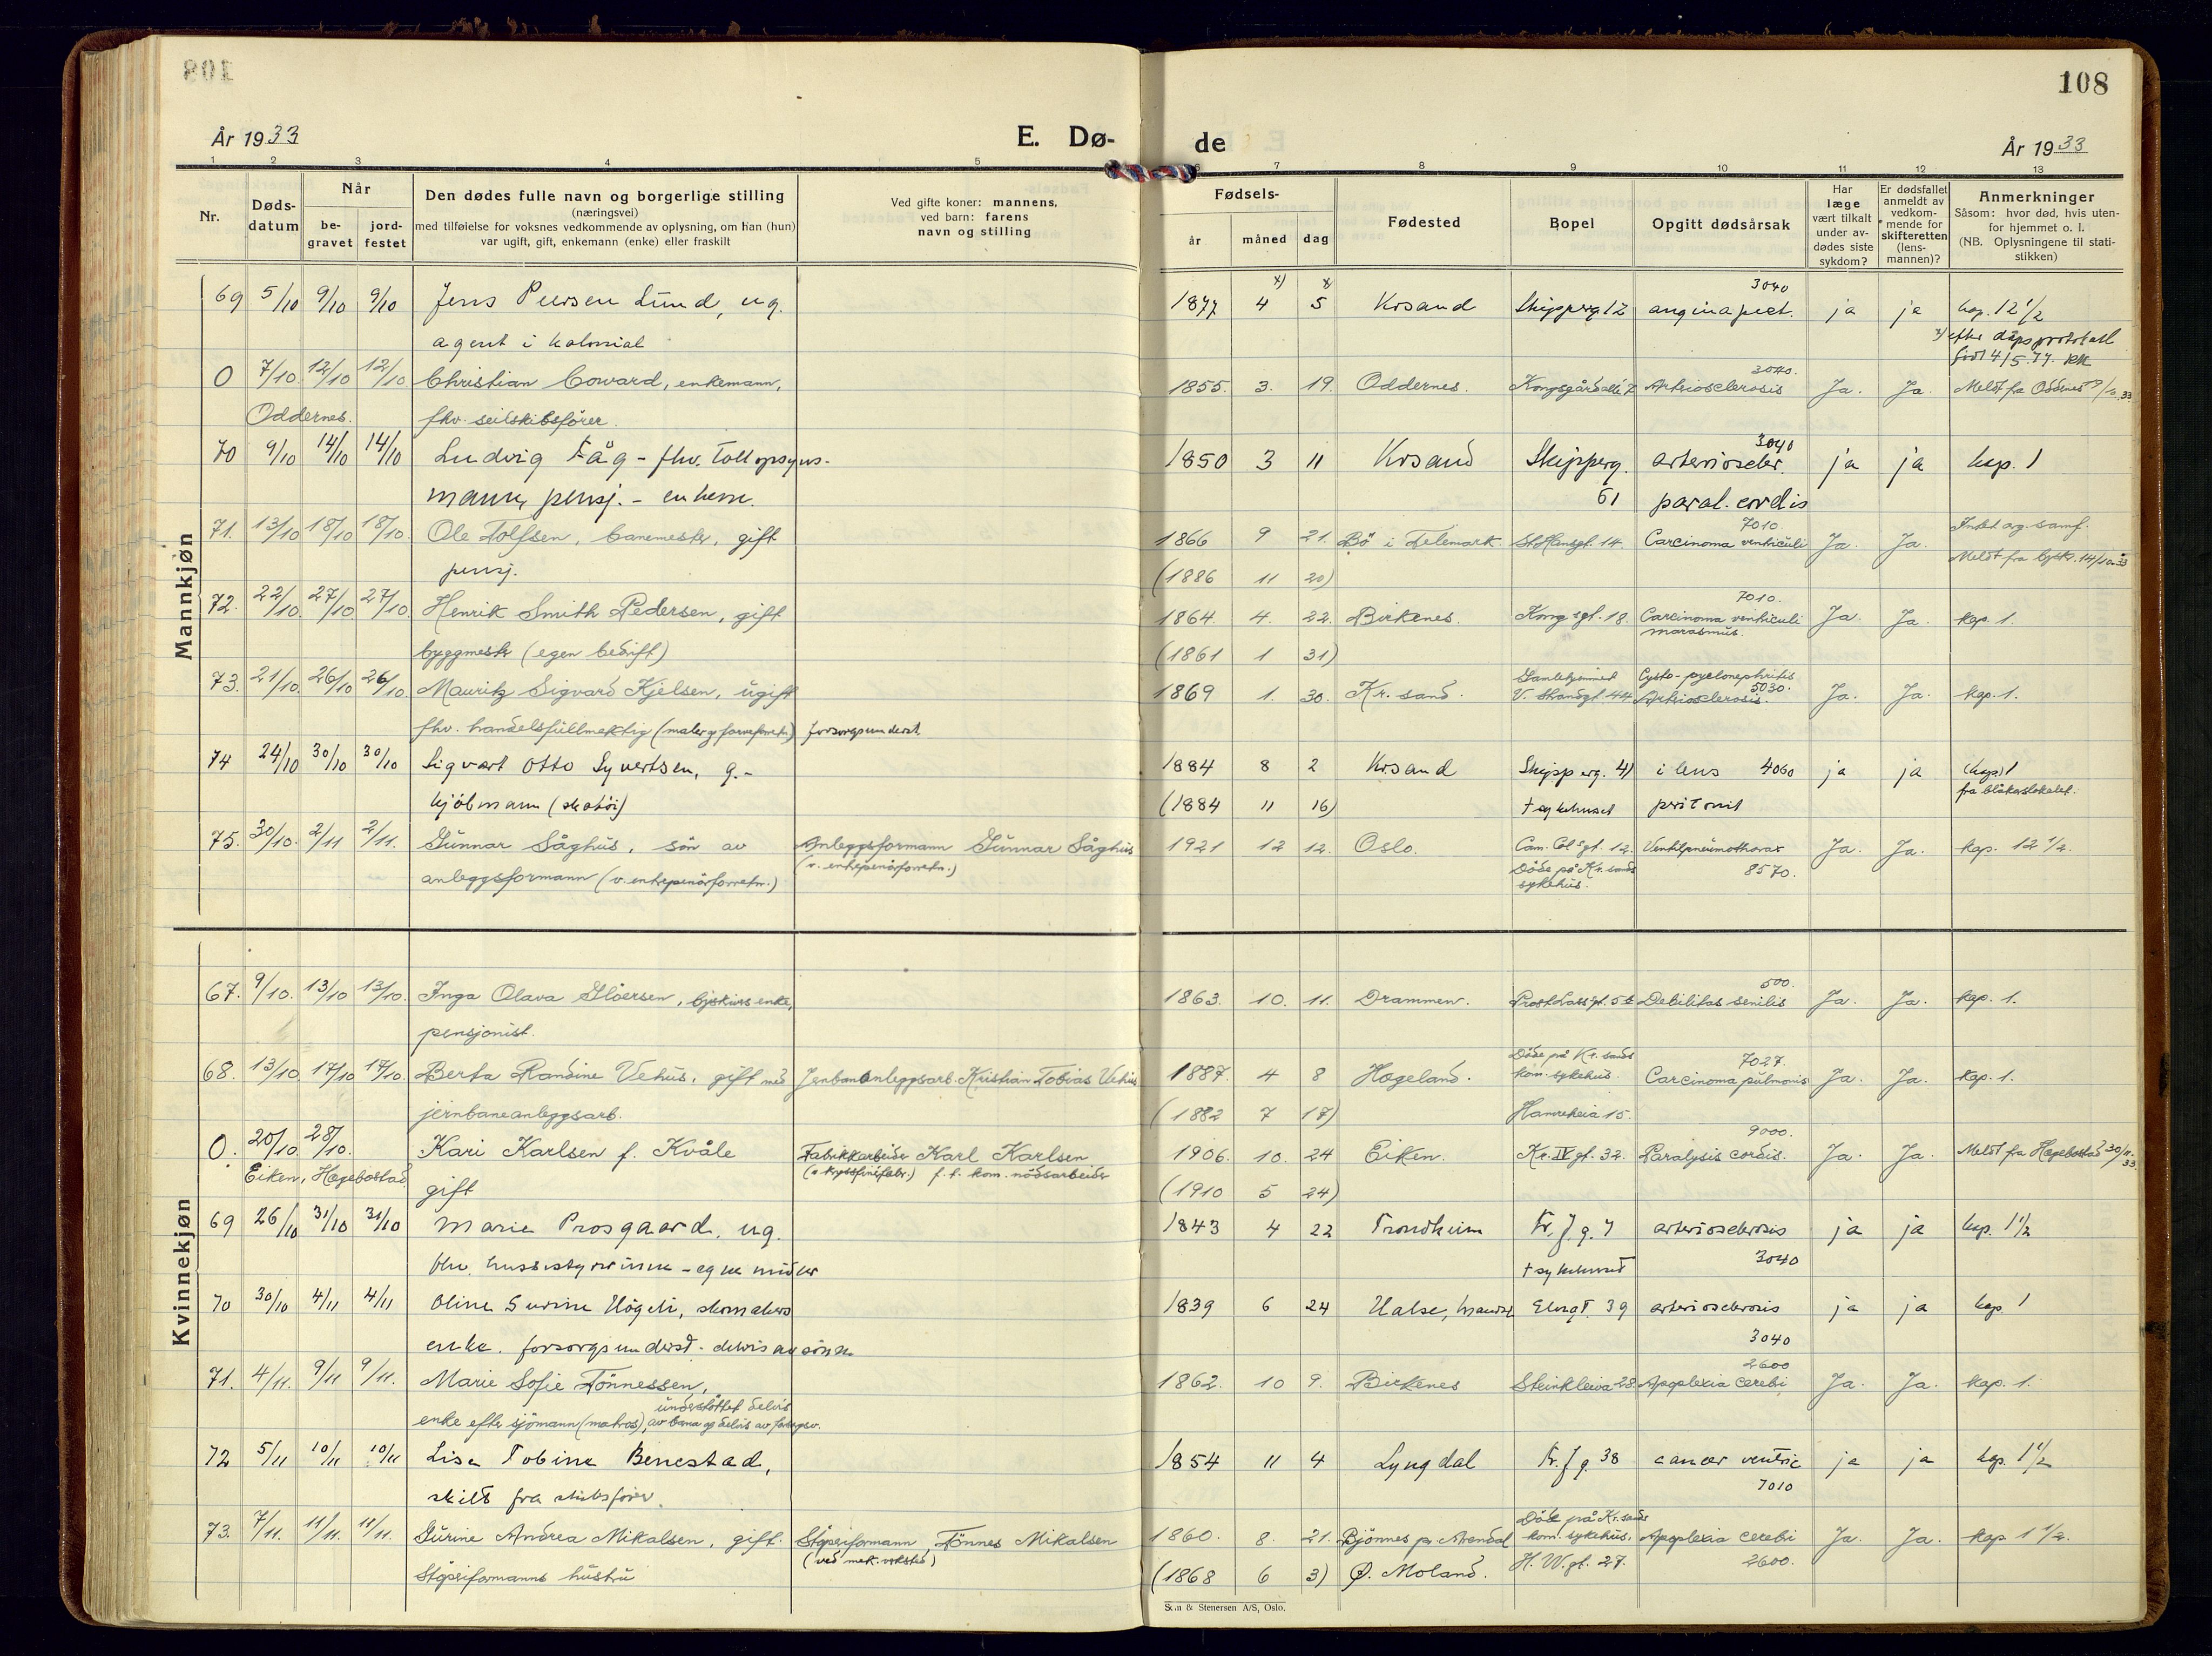 108
År 1933
E. Dø-
de
År 1933
1 2 3 4 5 6 7 8 9 10 11 12 13
Nr.
Døds-
datum
Når
be-
gravet
jord-
festet
Den dødes fulle navn og borgerlige stilling
(næringsvei)
med tilføielse for voksnes vedkommende av oplysning, om han (hun)
var ugift, gift, enkemann (enke) eller fraskilt
Ved gifte koner: mannens,
ved barn: farens
navn og stilling
Fødsels-
år måned dag
Fødested
Bopel
Opgitt dødsårsak
Har
læge
vært tilkalt
under av-
dødes siste
sykdom?
Er dødsfallet
anmeldt av
vedkom-
mende for
skifteretten
(lens-
mannen)?
Anmerkninger
Såsom: hvor død, hvis uten-
for hjemmet o. l.
(NB. Oplysningene til stati-
stikken)
Mannkjøn
x) x) 3040
69 5/10 9/10 9/10 Jens Peersen Lund, ug. 1877 4 5 Krsand Skipperg 12 angina pect. ja ja kap. 12 1/2
agent i kolonial x) efter dåpsprotokoll
født 4/5.77. KK
3040.
O 7/10 12/10 12/10 Christian Coward, enkemann, 1855. 3. 19. Oddernes. Kongsgård allé 7 Arteriosclerosis Ja. Ja. Meldt fra Oddernes
Oddernes. fhv. seilskibsfører.
3040
70 9/10 14/10 14/10 Ludvig Fåg - fhv. Tollopsyns- 1850 3 11 Krsand Skipperg. arterioscler. ja ja kap. 1
mann, pensj. - enkem. 61 paral. cordis
7010.
71. 13/10 18/10 18/10. Ole Tolfsen, banemester, gift 1866 9 21. Bö i Telemark. St. Hansgt. 14. Carcinoma ventriculi Ja. Ja.
pensj. (1886 11 20) Meldt fra
7010.
72. 22/10. 27/10 27/10. Henrik Smith Pedersen, gift 1864 4. 22. Birkenes. Kongsgt. 18. Carcinoma ventriculi Ja. Ja. kap. 1.
marasmus.
byggmester (egen bedrift) (1861 1 31)
Gamlehjemmet Cysto-pyelonephritis
73. 21/10. 26/10 26/10. Mauritz Sigvard Kjelsen, ugift 1869 1. 30. Kr.sand. V. Strandgt. 44 Arteriosclerosis. 5030. Ja. Ja. kap. 1.
fhv. handelsfullmektig forsorgsunderst.
74 24/10 30/10 30/10 Sigvart Otto Syvertsen, g.- 1884 8 2 Krsand Skipperg. 41 ileus 4060 ja ja (kap.) 1
fra blåkorslokalet.
kjöbmann (skotöi) (1884 11 16) † sykehuset peritonit
75. 30/10. 2/11 2/11. Gunnar Såghus, sön av Anleggsformann Gunnar Såghus 1921 12 12. Oslo. Cam. Col. sgt. 12. Ventilpneumothorax Ja. Ja. kap. 12 1/2.
anleggsformann (v. entrepenörforretn.) (v. entrepenörforretn.) Döde på Kr.sands 8570.
sykehus.
Kvinnekjøn
500.
67. 9/10. 13/10 13/10. Inga Olava Gloersen, enke, 1863. 10. 11. Drammen. Debilitas senilis Ja. Ja. kap. 1.
pensjonist.
Döde på Kr.sands 7027.
68. 13/10 17/10 17/10. Berta Randine Vehus, gift med Jernbaneanleggsarb. Kristian Tobias Vehus 1887. 4 8 Hægeland. kom. sykehus. Carcinoma pulmonis Ja. Ja. kap. 1.
jernbaneanleggsarb. (1882 7 17) Hannreheia 15.
9000.
O. 20/10. 28/10. Kari Karlsen f. Kvåle Fabrikkarbeider Karl Karlsen 1906. 10. 24 Eiken. Kr. IV gt. 32. Paralysis cordis. Ja. Ja. Meldt fra Hægebostad 30/11.33.
Eiken, Hægebostad gift f. t. kom. nödsarbeider (1910 5 24)
69 26/10 31/10 31/10 Marie Prosgaard, ug. 1843 4 22 Trondheim Kr. f. g. 7 arteriosclerosis ja ja kap. 1 1/2
fhv. husbestyrerinne - egne midler † sykehuset 3040
70 30/10 4/11 4/11 Oline Surine Högeli, skomakers 1839 6 24 Halse, Mandal Elvegt. 39 arteriosclerosis ja ja kap. 1
enke. forsorgsunderst - delvis av sönn 3040
2600
71. 4/11. 9/11 9/11. Marie Sofie Tönnessen, 1862. 10 9. Birkenes Steinkleiva 28. Apoplexia cerebi Ja. Ja. kap. 1.
understöttet delvis
enke efter sjömann (matros), av barna og delvis av forsorgsv.
72 5/11 10/11 10/11 Lisa Tobine Benestad, 1854 11 4 Lyngdal Kr. f. g. 38 cancer ventric ja ja kap. 1 1/2
skilt fra skibsförer. 7010
Döde på Kr.sands
73. 7/11. 11/11. 11/11. Gurine Andrea Mikalsen, gift. Stöperiformann Tönnes Mikalsen 1860. 8. 21. Bjönnes pr Arendal kom. sykehus. Apoplexia cerebi Ja. Ja. kap 1 1/2.
Stöperiformanns hustru (ved mek. verksted) (1868 6 3) Ø. Moland. H. W. gt. 27. 2600.
& Stenersen A/S, Oslo.